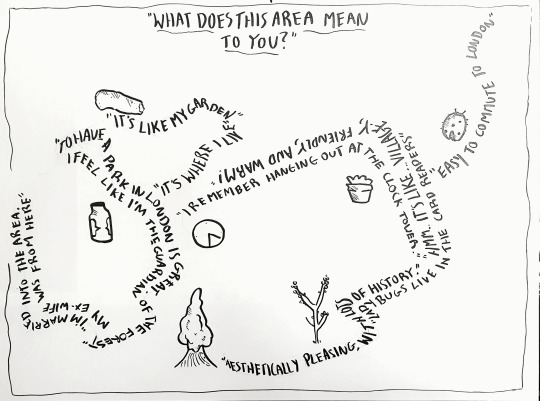 "WHAT DOES THIS AREA MEAN
TO YOU?"
"IT'S LIKE MY GARDEN"
"IT'S WHERE I LIVE"
"TO HAVE A PARK IN LONDON IS GREAT
I FEEL LIKE I'M THE GUARDIAN OF THE FOREST"
"I'M MARRIED INTO THE AREA.
MY EX-WIFE WAS FROM HERE"
"I REMEMBER HANGING OUT AT THE CLOCK TOWER."
"HMM.. IT'S LIKE.. VILLAGEY, FRIENDLY, AND WARM!"
"EASY TO COMMUTE TO LONDON"
"LADYBUGS LIVE IN THE CARD READERS"
"AESTHETICALLY PLEASING, WITH LOTS OF HISTORY."